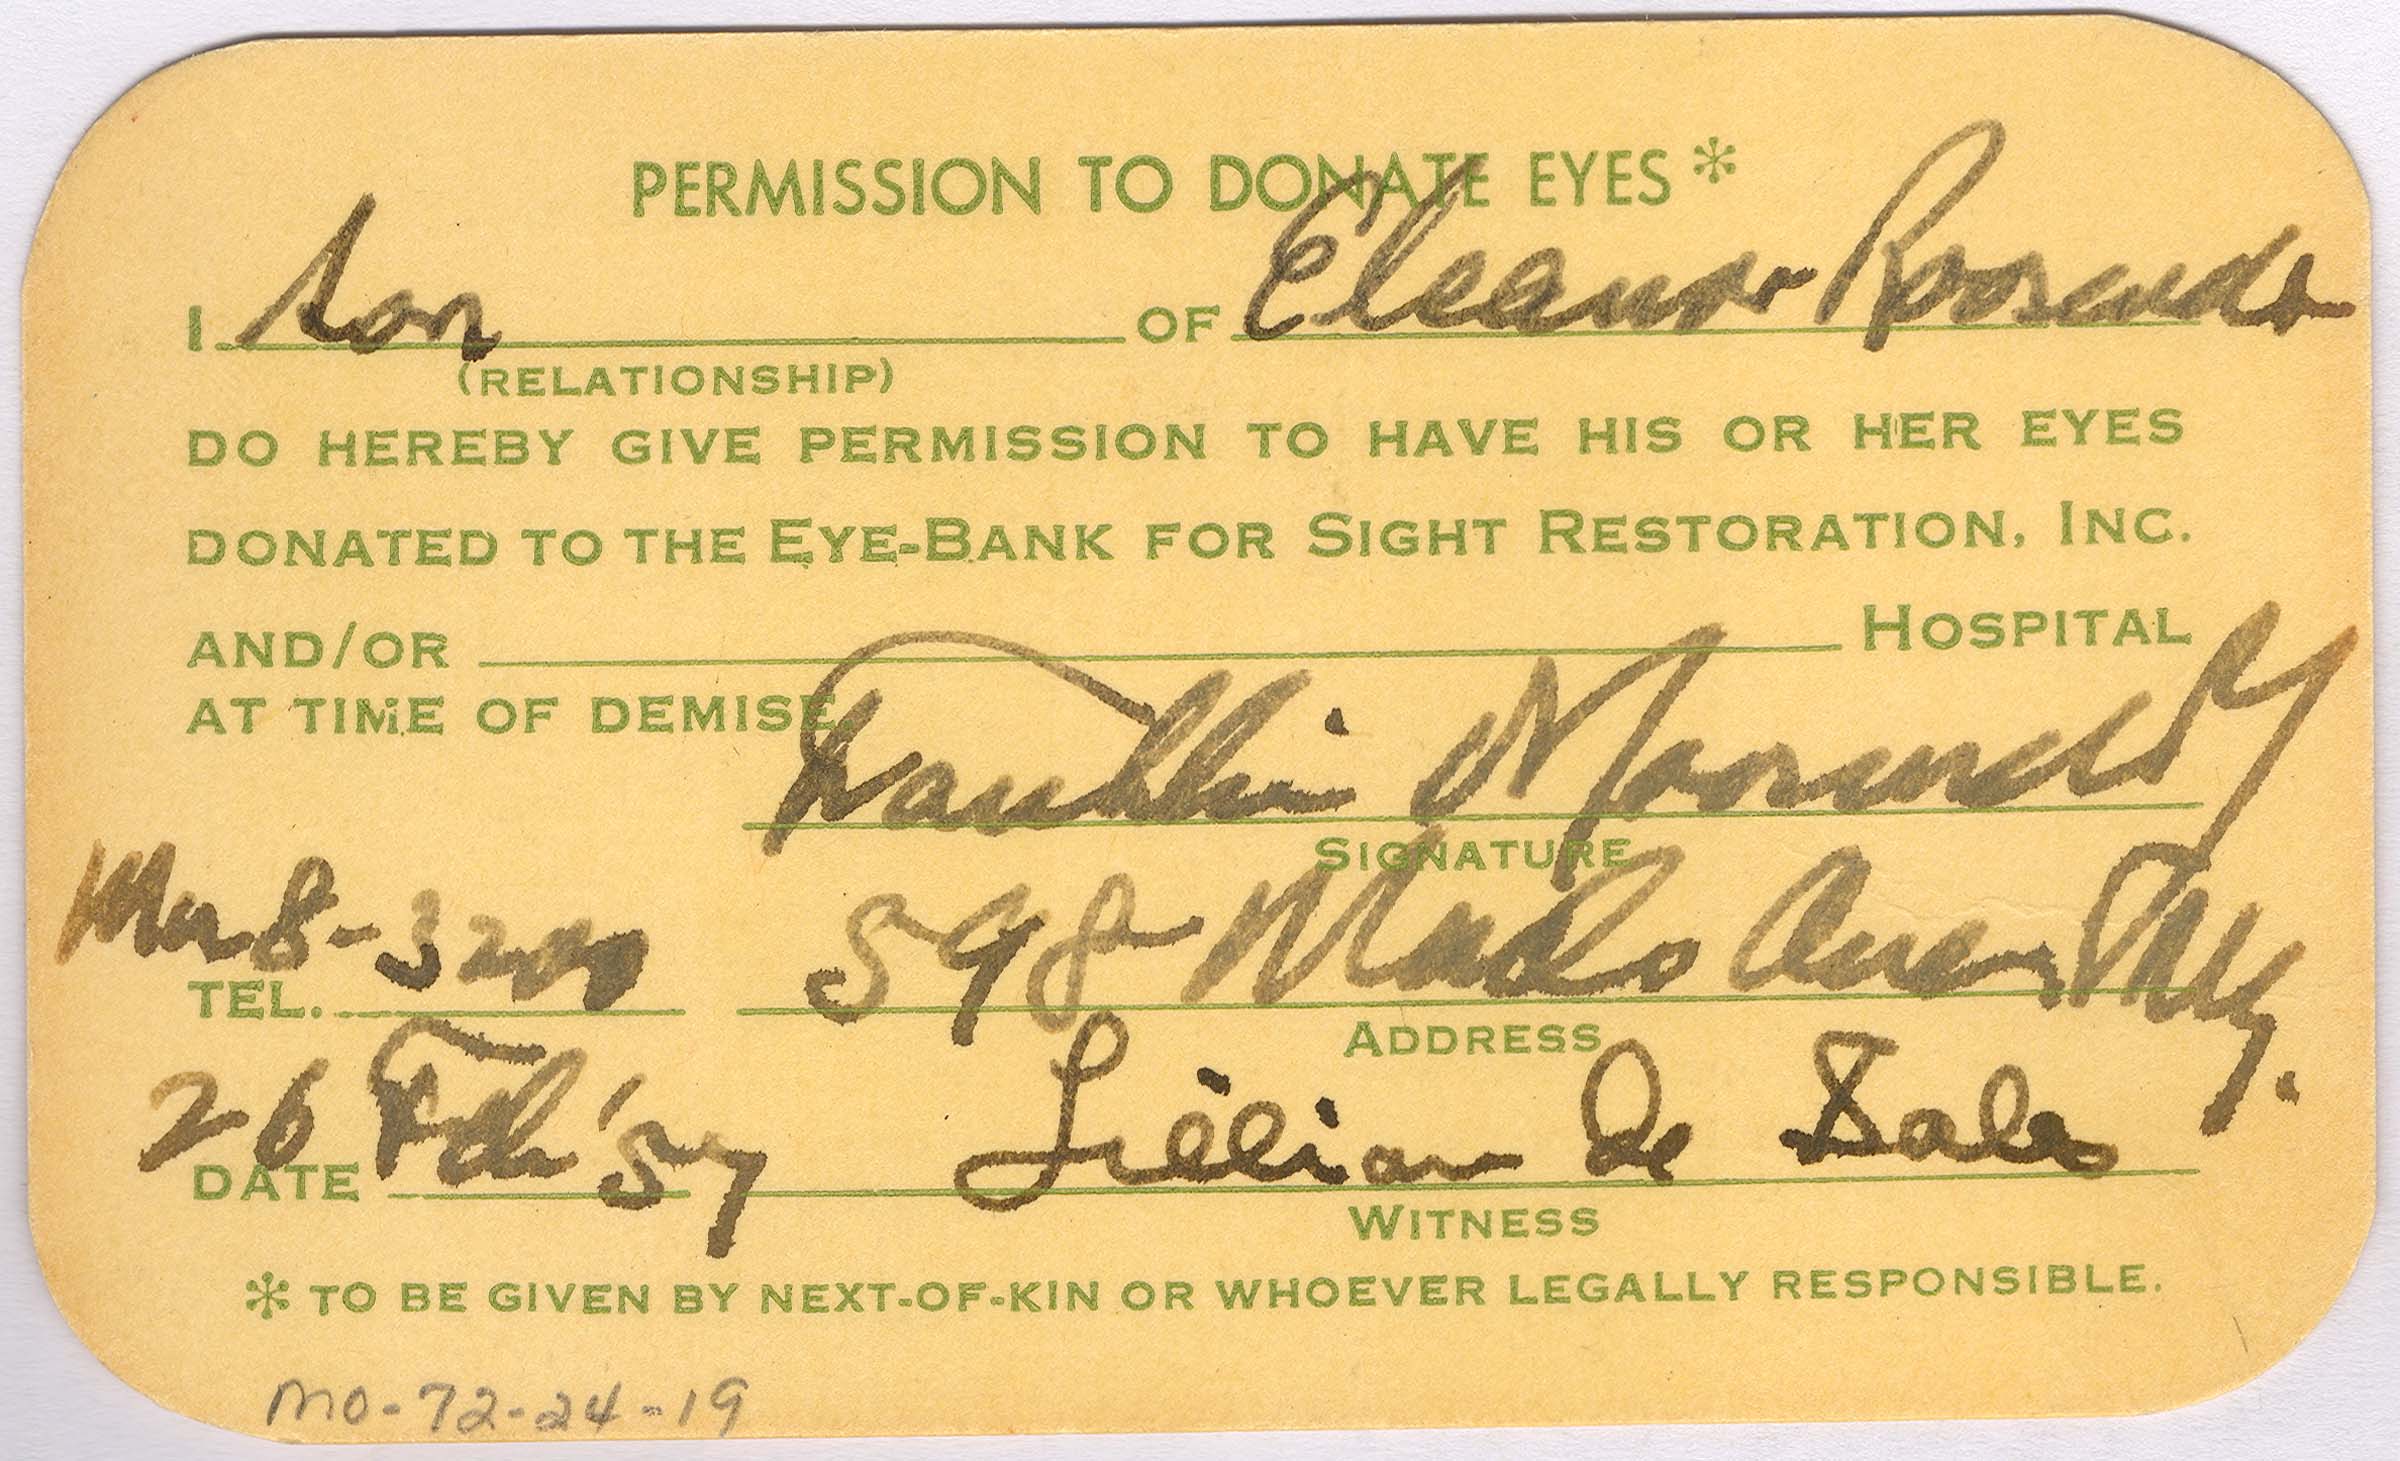 PERMISSION TO DONATE EYES *
I son OF Eleanor Roosevelt
(RELATIONSHIP)
DO HEREBY GIVE PERMISSION TO HAVE HIS OR HER EYES
DONATED TO THE EYE-BANK FOR SIGHT RESTORATION, INC.
AND/OR HOSPITAL
AT TIME OF DEMISE.
Franklin Roosevelt Jr
SIGNATURE
8-3200 598 Ave
TEL. ADDRESS
26 Feb '57 Lillian de
DATE WITNESS
* TO BE GIVEN BY NEXT-OF-KIN OR WHOEVER LEGALLY RESPONSIBLE.
MO-72-24-19